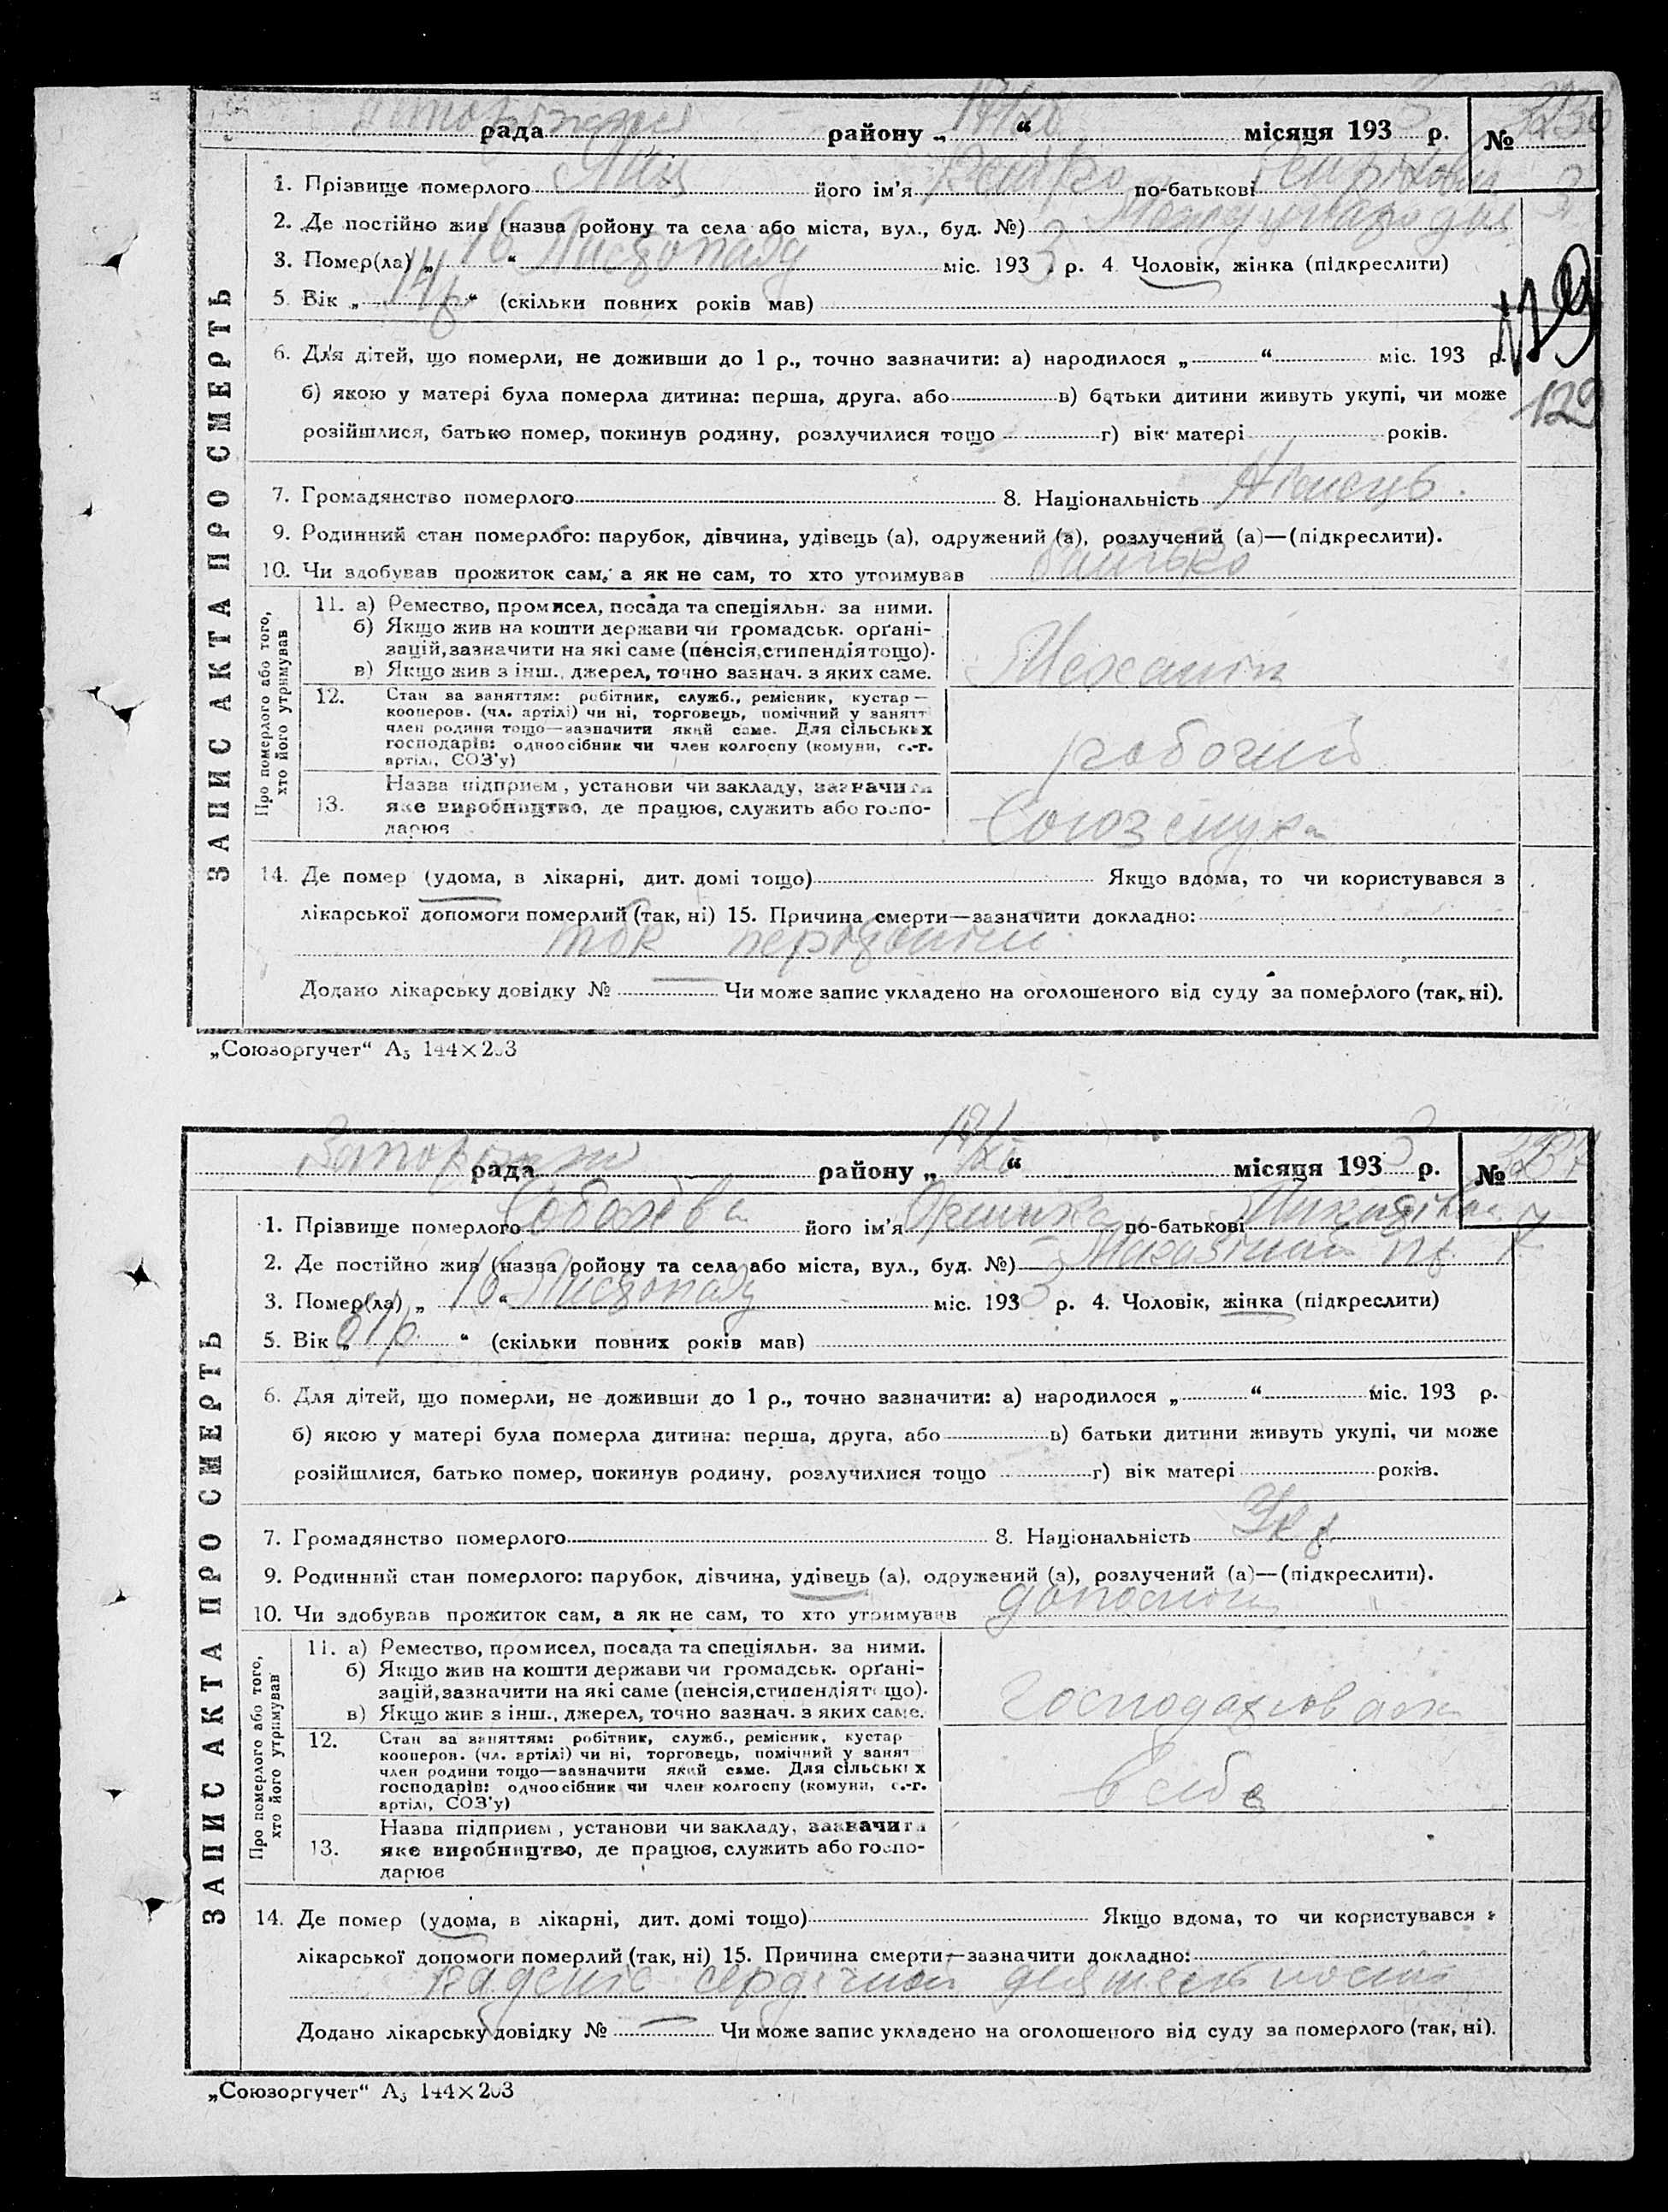 рада району „ 17/XI “ місяця 193 3 р. №
1. Прізвище померлого його ім'я по-батькові
2. Де постійно жив (назва ройону та села або міста, вул., буд. №)
3. Помер(ла) „ 16 “ Листопаду міс. 193 3 р. 4. Чоловік, жінка (підкреслити)
5. Вік „ 14 р “ (скільки повних років мав)
129
129
6. Для дітей, що померли, не доживши до 1 р., точно зазначити: а) народилося „ “ міс. 193 р.
б) якою у матері була померла дитина: перша, друга, або в) батьки дитини живуть укупі, чи може
розійшлися, батько помер, покинув родину, розлучилися тощо г) вік матері років.
7. Громадянство померлого 8. Національність Німець.
9. Родинний стан померлого: парубок, дівчина, удівець (а), одружений (а), розлучений (а)—(підкреслити).
10. Чи здобував прожиток сам, а як не сам, то хто утримував батько
ЗАПИС АКТА ПРО СМЕРТЬ
Про померлого або того,
хто його утримував
11. а) Ремество, промисел, посада та спеціяльн. за ними.
б) Якщо жив на кошти держави чи громадськ. орґані-
зацій, зазначити на які саме (пенсія, стипендія тощо).
в) Якщо жив з інш., джерел, точно зазнач. з яких саме.
Механік
12. Стан за заняттям: робітник, служб., ремісник, кустар —
кооперов. (чл. артілі) чи ні, торговець, помічний у занятт
член родини тощо—зазначити який саме. Для сільських
господарів: одноосібник чи член колгоспу (комуни, с.-г.
артілі, СОЗ'у)
робочий
13. Назва підприєм, установи чи закладу, зазначити
яке виробництво, де працює, служить або госпо-
дарює
14. Де помер (удома, в лікарні, дит. домі тощо) Якщо вдома, то чи користувався з
лікарської допомоги померлий (так, ні) 15. Причина смерти—зазначити докладно:
Додано лікарську довідку № — Чи може запис укладено на оголошеного від суду за померлого (так, ні).
„Союзоргучет“ А5 144×203
рада району „ 19/XI “ місяця 193 3 р. №
1. Прізвище померлого його ім'я по-батькові
2. Де постійно жив (назва ройону та села або міста, вул., буд. №)
3. Помер(ла) „ 16 “ Листопаду міс. 193 3 р. 4. Чоловік, жінка (підкреслити)
5. Вік „ 81 р. “ (скільки повних років мав)
6. Для дітей, що померли, не доживши до 1 р., точно зазначити: а) народилося „ “ міс. 193 р.
б) якою у матері була померла дитина: перша, друга, або в) батьки дитини живуть укупі, чи може
розійшлися, батько помер, покинув родину, розлучилися тощо г) вік матері років.
7. Громадянство померлого 8. Національність Укр.
9. Родинний стан померлого: парубок, дівчина, удівець (а), одружений (а), розлучений (а)—(підкреслити).
10. Чи здобував прожиток сам, а як не сам, то хто утримував
ЗАПИС АКТА ПРО СМЕРТЬ
Про померлого або того,
хто його утримував
11. а) Ремество, промисел, посада та спеціяльн. за ними.
б) Якщо жив на кошти держави чи громадськ. орґані-
зацій, зазначити на які саме (пенсія, стипендія тощо).
в) Якщо жив з інш., джерел, точно зазнач. з яких саме.
12. Стан за заняттям: робітник, служб., ремісник, кустар
кооперов. (чл. артілі) чи ні, торговець, помічний у занят
член родини тощо—зазначити який саме. Для сільських
господарів: одноосібник чи член колгоспу (комуни, с.-г.
артілі, СОЗ'у)
в себе
13. Назва підприєм, установи чи закладу, зазначити
яке виробництво, де працює, служить або госпо-
дарює
14. Де помер (удома, в лікарні, дит. домі тощо) Якщо вдома, то чи користувався з
лікарської допомоги померлий (так, ні) 15. Причина смерти—зазначити докладно:
Додано лікарську довідку № — Чи може запис укладено на оголошеного від суду за померлого (так, ні).
„Союзоргучет“ А5 144×203